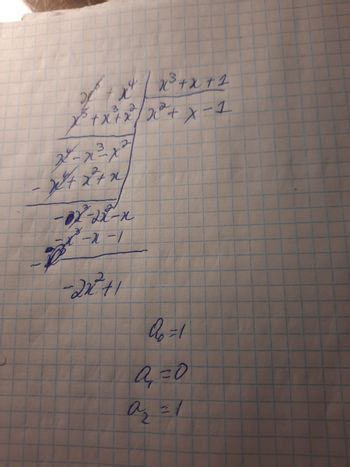 x⁵ + x⁴ | x³ + x + 1
x⁵ + x³ + x² | x² + x - 1
x⁴ - x³ - x²
- x⁴ + x² + x
- x³ - 2x² - x
- - x³ - x - 1
-2x² + 1
a₀ = 1
a₁ = 0
a₂ = 1